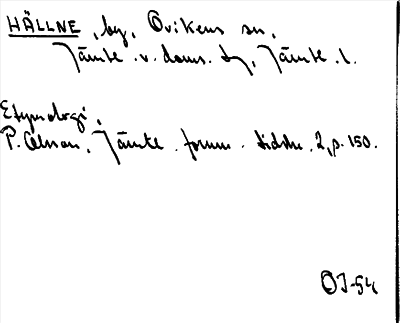 HÄLLNE, by, Ovikens sn,
Jämtl. v. doms. tg, Jämtl. l.
Etymologi.
P. Olsson, Jämtl. fornm. tidskr. 2, p. 150.
OJ-54